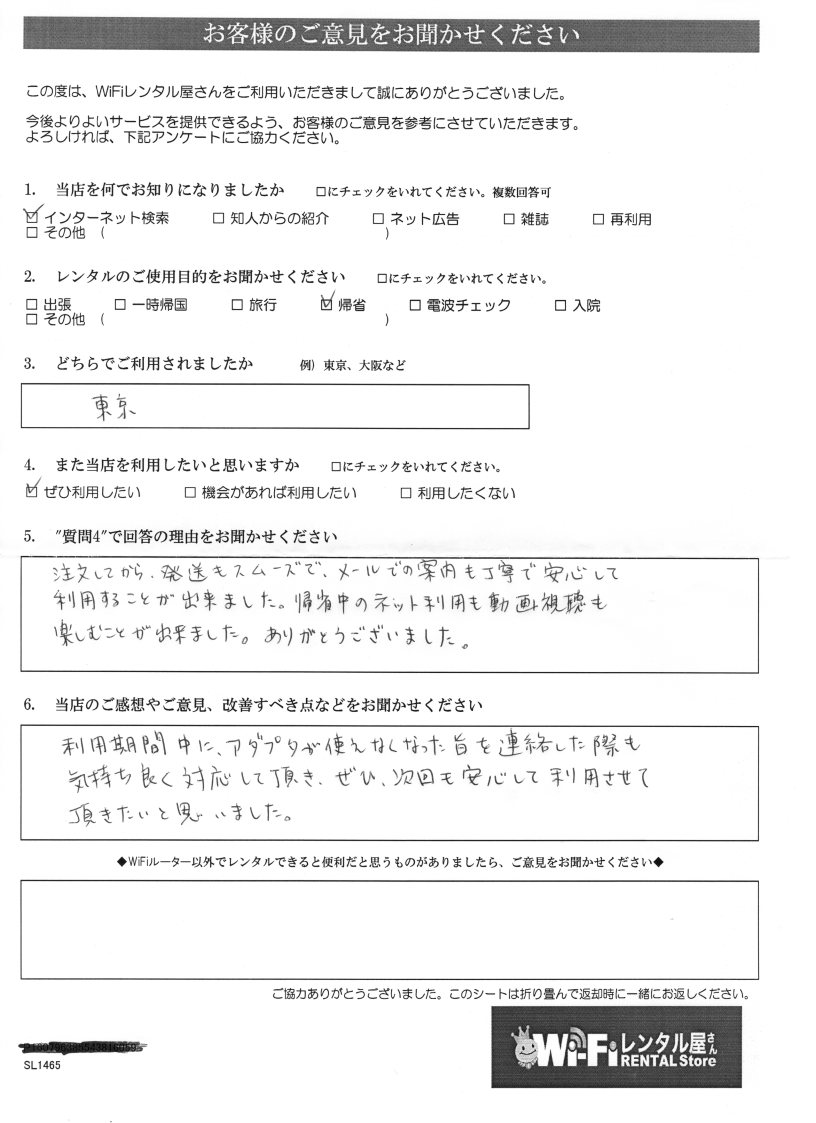 お客様のご意見をお聞かせください
この度は、WiFiレンタル屋さんをご利用いただきまして誠にありがとうございました。
今後よりよいサービスを提供できるよう、お客様のご意見を参考にさせていただきます。
よろしければ、下記アンケートにご協力ください。
1. 当店を何でお知りになりましたか □にチェックをいれてください。複数回答可
☑ インターネット検索 □ 知人からの紹介 □ ネット広告 □ 雑誌 □ 再利用
□ その他 ( )
2. レンタルのご使用目的をお聞かせください □にチェックをいれてください。
□ 出張 □ 一時帰国 □ 旅行 ☑ 帰省 □ 電波チェック □ 入院
□ その他 ( )
3. どちらでご利用されましたか 例) 東京、大阪など
東京
4. また当店を利用したいと思いますか □にチェックをいれてください。
☑ ぜひ利用したい □ 機会があれば利用したい □ 利用したくない
5. "質問4"で回答の理由をお聞かせください
注文してから、発送もスムーズで、メールでの案内も丁寧で安心して
利用することが出来ました。帰省中のネット利用も動画視聴も
楽しむことが出来ました。ありがとうございました。
6. 当店のご感想やご意見、改善すべき点などをお聞かせください
利用期間中に、アダプタが使えなくなった旨を連絡した際も、
気持ち良く対応して頂き、ぜひ、次回も安心して利用させて
頂きたいと思いました。
◆WiFiルーター以外でレンタルできると便利だと思うものがありましたら、ご意見をお聞かせください◆
ご協力ありがとうございました。このシートは折り畳んで返却時に一緒にお返しください。
Wi-Fiレンタル屋さん
RENTAL Store
SL1465